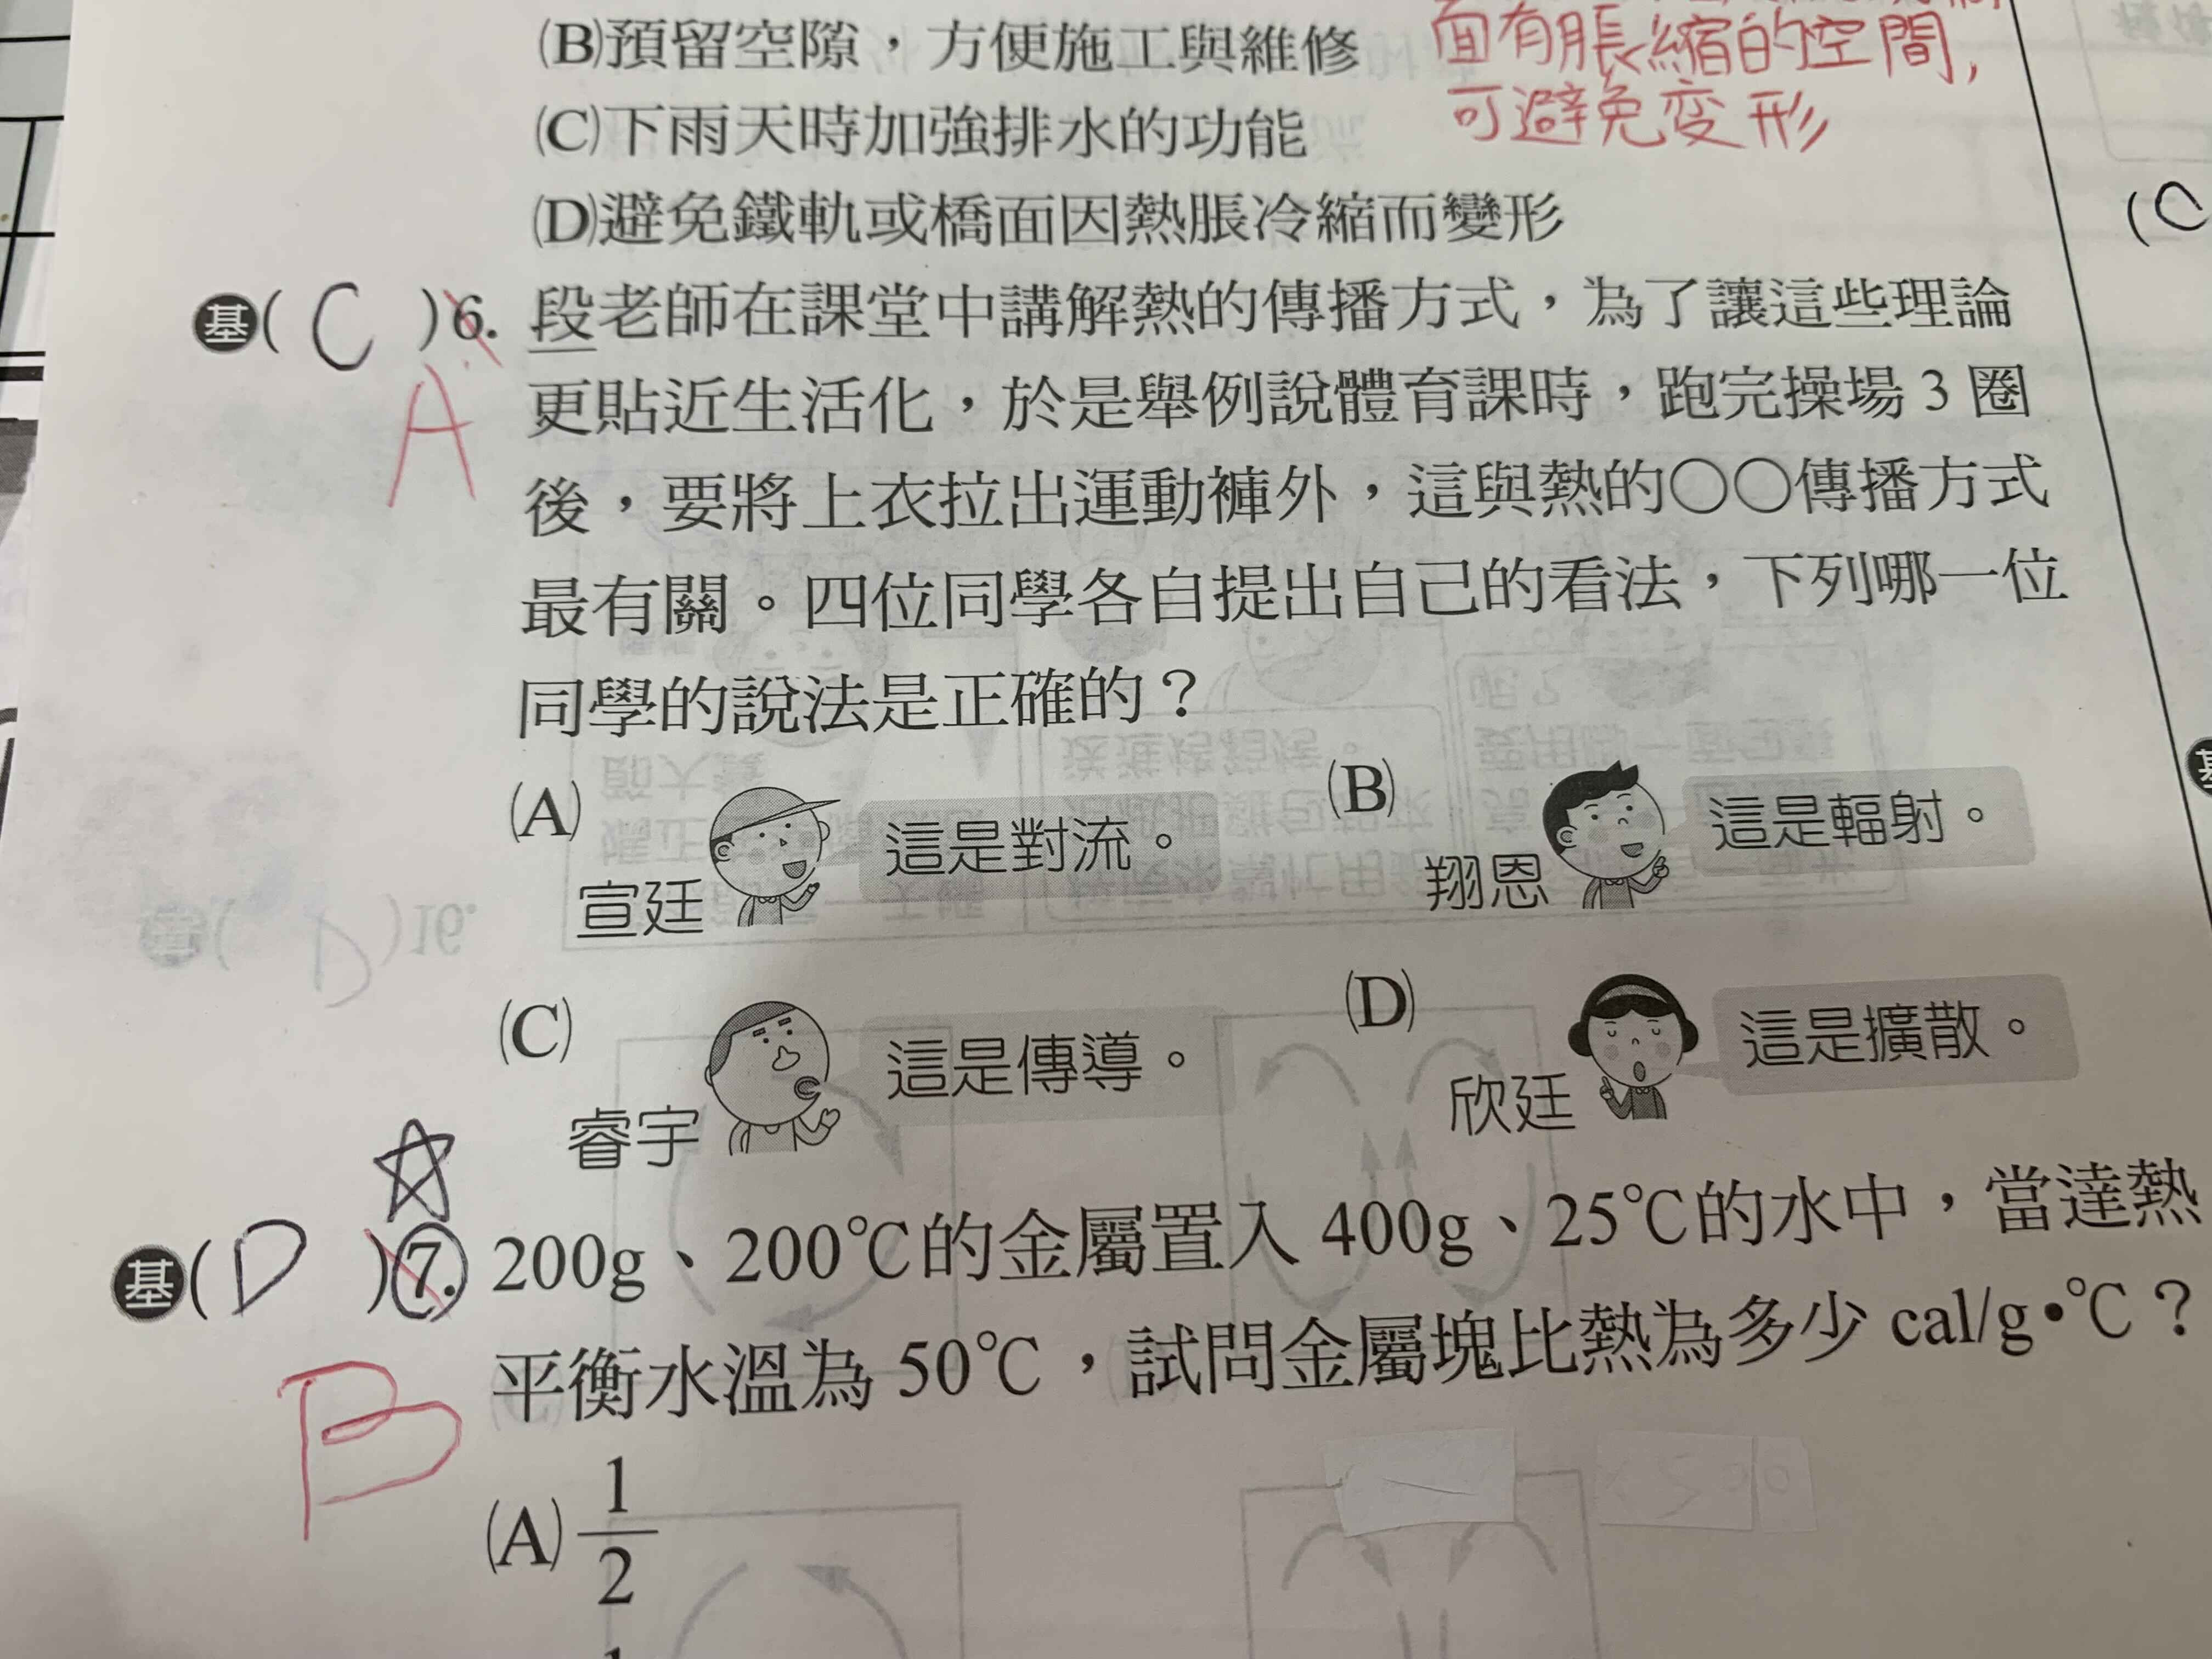 (B)預留空隙，方便施工與維修
面有脹縮的空間，
可避免变形
(C)下雨天時加強排水的功能
(D)避免鐵軌或橋面因熱脹冷縮而變形
基( C )6. 段老師在課堂中講解熱的傳播方式，為了讓這些理論
A
更貼近生活化，於是舉例說體育課時，跑完操場 3 圈
後，要將上衣拉出運動褲外，這與熱的○○傳播方式
最有關。四位同學各自提出自己的看法，下列哪一位
同學的說法是正確的？
(A) 宣廷 這是對流。
(B) 翔恩 這是輻射。
(C) 睿宇 這是傳導。
(D) 欣廷 這是擴散。
基( D )7. 200g、200℃的金屬置入 400g、25℃的水中，當達熱
B
平衡水溫為 50℃，試問金屬塊比熱為多少 cal/g•℃？
(A) 1/2